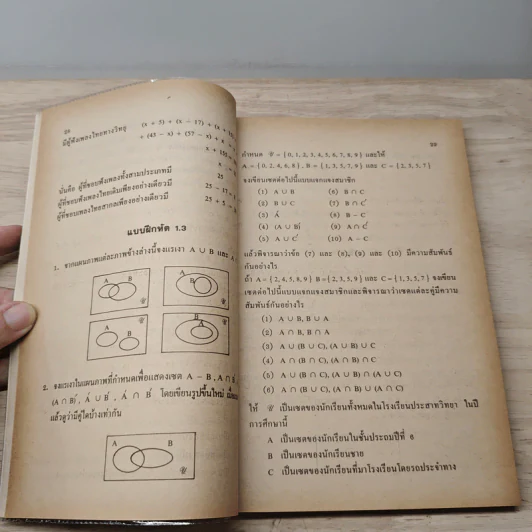 28
มีผู้ฟังเพลงไทยทางวิทยุ (x + 5) + (x − 17) + (x + 18)
+ (43 − x) + (57 − x) + x
นั่นคือ ผู้ที่ชอบฟังเพลงทั้งสามประเภทมี 25
ผู้ที่ชอบฟังเพลงไทยเดิมเพียงอย่างเดียวมี 25 − 17
ผู้ที่ชอบเพลงไทยสากลเพียงอย่างเดียวมี 25 + 5
แบบฝึกหัด 1.3
1. จากแผนภาพแต่ละภาพข้างล่างนี้จงแรเงา A ∪ B และ
A B 𝒰
A B 𝒰
A B 𝒰
A B 𝒰
2. จงแรเงาในแผนภาพที่กำหนดเพื่อแสดงเซต A − B, A ∩ B
(A ∩ B)′, A′ ∪ B′, A′ ∩ B′ โดยเขียนรูปขึ้นใหม่
แล้วดูว่ามีคู่ใดบ้างเท่ากัน
A B 𝒰
29
กำหนด 𝒰 = {0, 1, 2, 3, 4, 5, 6, 7, 8, 9} และให้
A = {0, 2, 4, 6, 8}, B = {1, 3, 5, 7, 9} และ C = {2, 3, 5, 7}
จงเขียนเซตต่อไปนี้แบบแจกแจงสมาชิก
(1) A ∪ B (6) B ∩ C
(2) B ∪ C (7) B ∩ C′
(3) A′ (8) B − C
(4) (A ∪ B)′ (9) A ∩ C′
(5) A′ ∪ C′ (10) A − C
แล้วพิจารณาว่าข้อ (7) และ (8), (9) และ (10) มีความสัมพันธ์
กันอย่างไร
A = {2, 4, 5, 8, 9} B = {2, 3, 5, 9} และ C = {1, 3, 5, 7} จงเขียน
เซตต่อไปนี้แบบแจกแจงสมาชิกและพิจารณาว่าเซตแต่ละคู่มีความ
สัมพันธ์กันอย่างไร
(1) A ∪ B, B ∪ A
(2) A ∩ B, B ∩ A
(3) A ∪ (B ∪ C), (A ∪ B) ∪ C
(4) A ∩ (B ∩ C), (A ∩ B) ∩ C
(5) A ∪ (B ∩ C), (A ∪ B) ∩ (A ∪ C)
(6) A ∩ (B ∪ C), (A ∩ B) ∪ (A ∩ C)
ให้ 𝒰 เป็นเซตของนักเรียนทั้งหมดในโรงเรียนประสาทวิทยา ในปี
การศึกษานี้
A เป็นเซตของนักเรียนในชั้นประถมปีที่ 6
B เป็นเซตของนักเรียนชาย
C เป็นเซตของนักเรียนที่มาโรงเรียนโดยรถประจำทาง